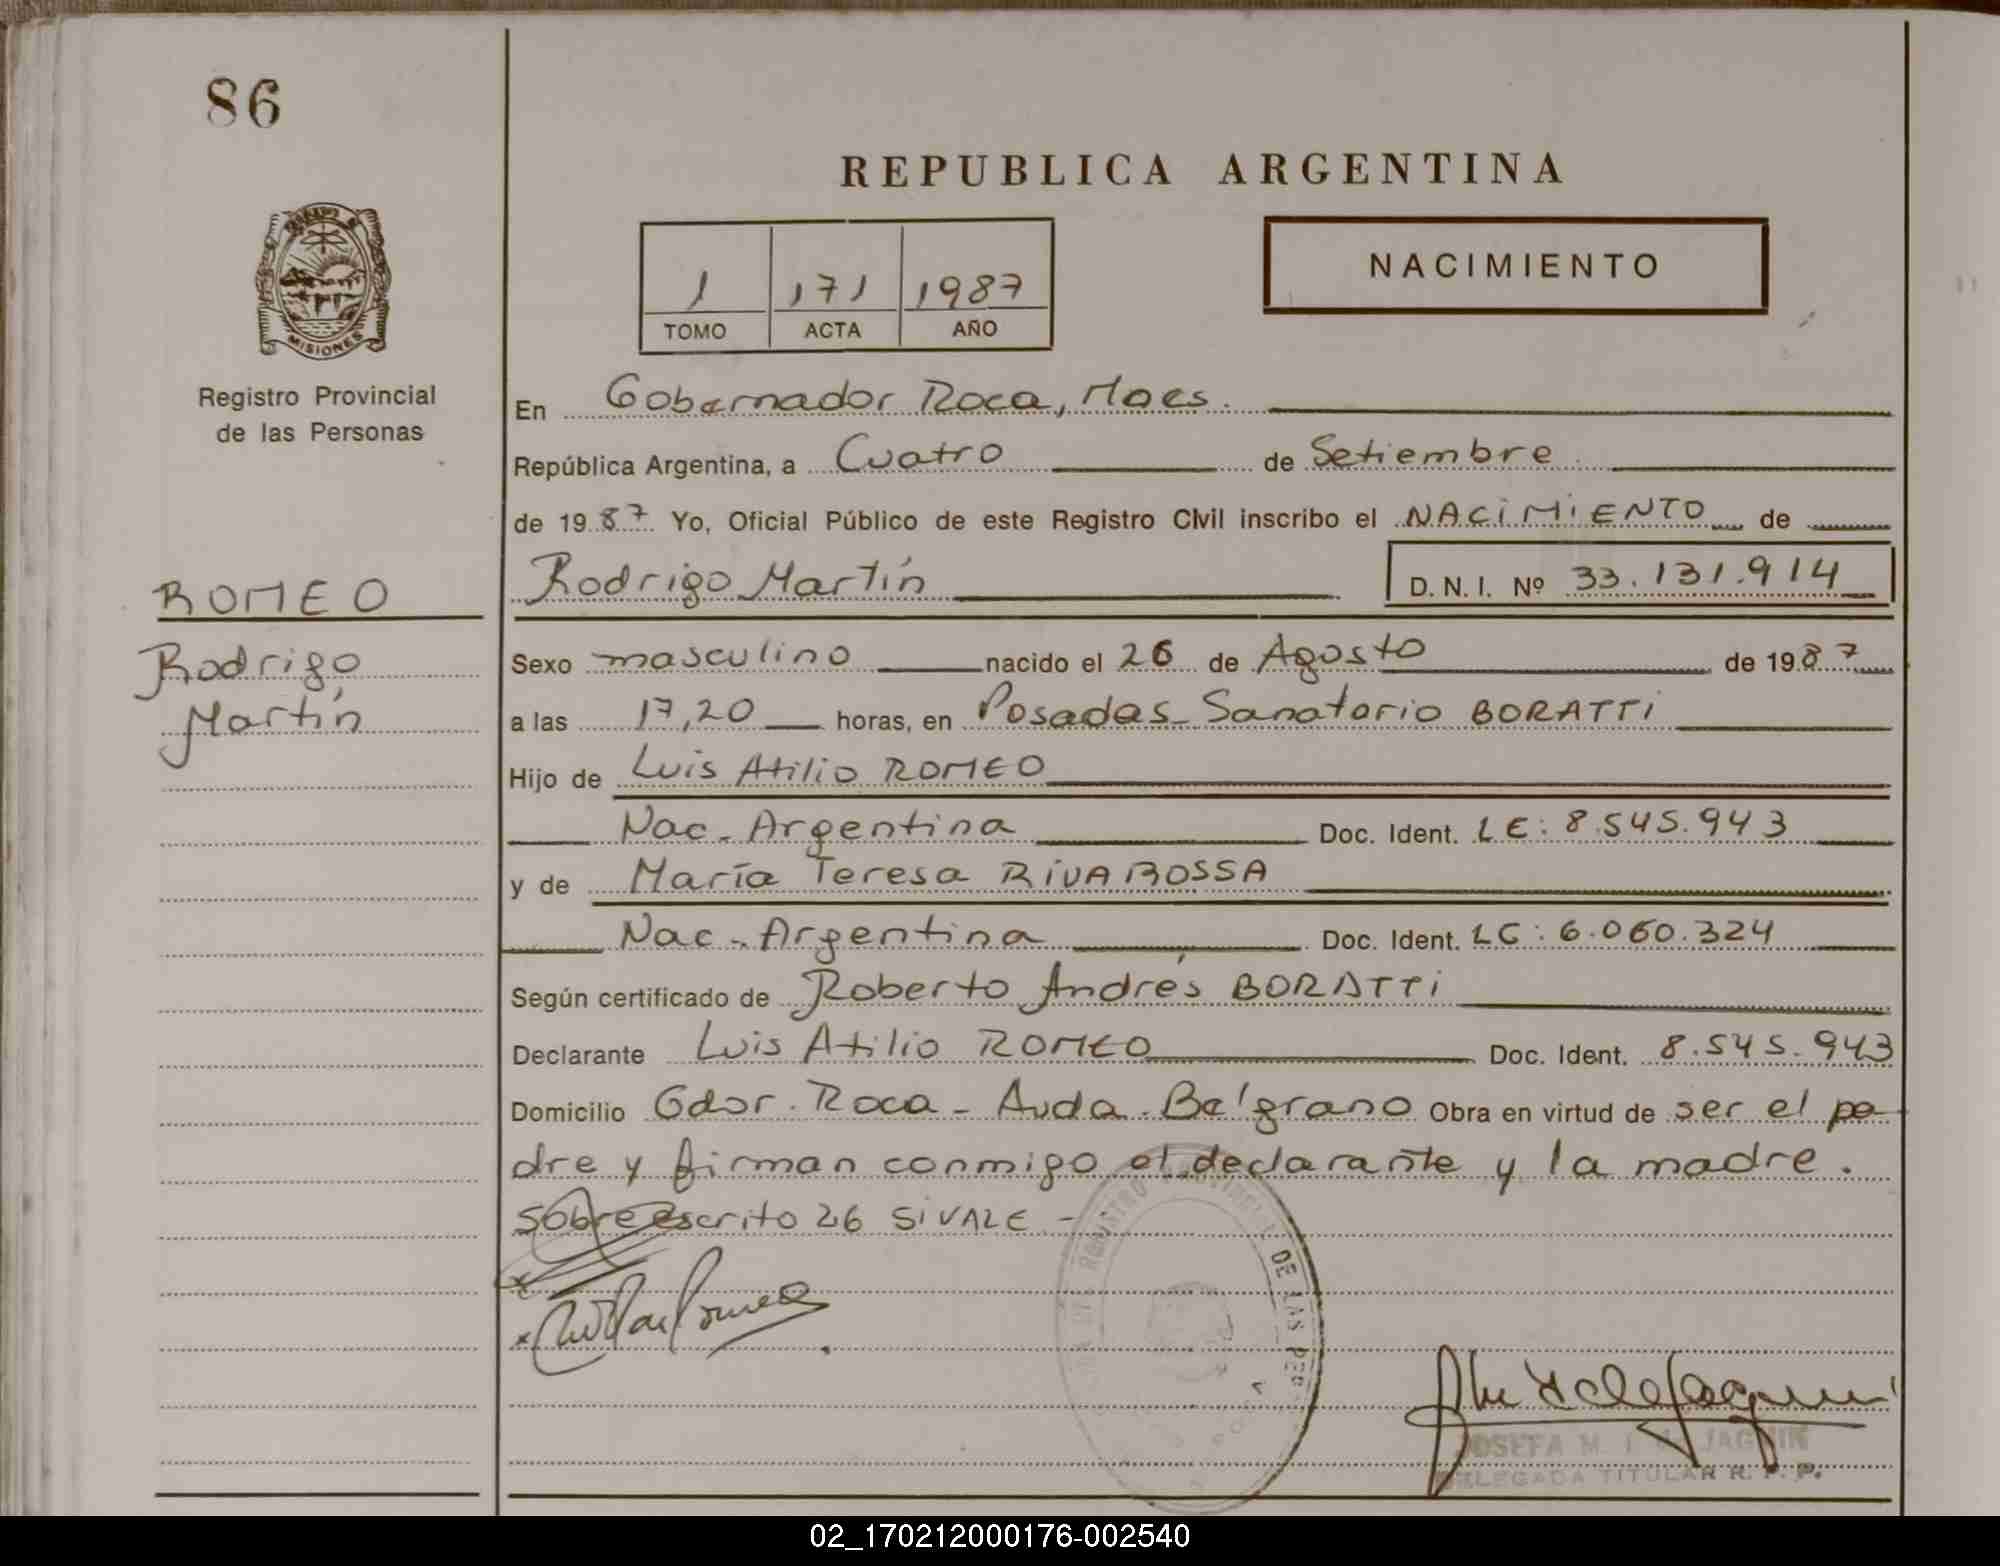 86
REPUBLICA ARGENTINA
NACIMIENTO
1 171 1987
TOMO ACTA AÑO
MISIONES
Registro Provincial
de las Personas
ROMEO
Rodrigo
Martín
En Gobernador Roca, Mnes.
República Argentina, a Cuatro de Setiembre
de 1987 Yo, Oficial Público de este Registro Civil inscribo el NACIMIENTO de
Rodrigo Martín D. N. I. Nº 33.131.914
Sexo masculino nacido el 26 de Agosto de 1987
a las 17,20 horas, en Posadas - Sanatorio BORATTI
Hijo de Luis Atilio ROMEO
Nac - Argentina Doc. Ident. LE: 8.545.943
y de María Teresa RIVAROSSA
Nac - Argentina Doc. Ident. LC: 6.060.324
Según certificado de Roberto Andrés BORATTI
Declarante Luis Atilio ROMEO Doc. Ident. 8.545.943
Domicilio Gdor. Roca - Avda. Belgrano Obra en virtud de ser el pa-
dre y firman conmigo el declarante y la madre.
Sobreescrito 26 SI VALE -
DE LAS
JOSEFA M. JAGUIN
DELEGADA TITULAR R. P. P.
02_170212000176-002540